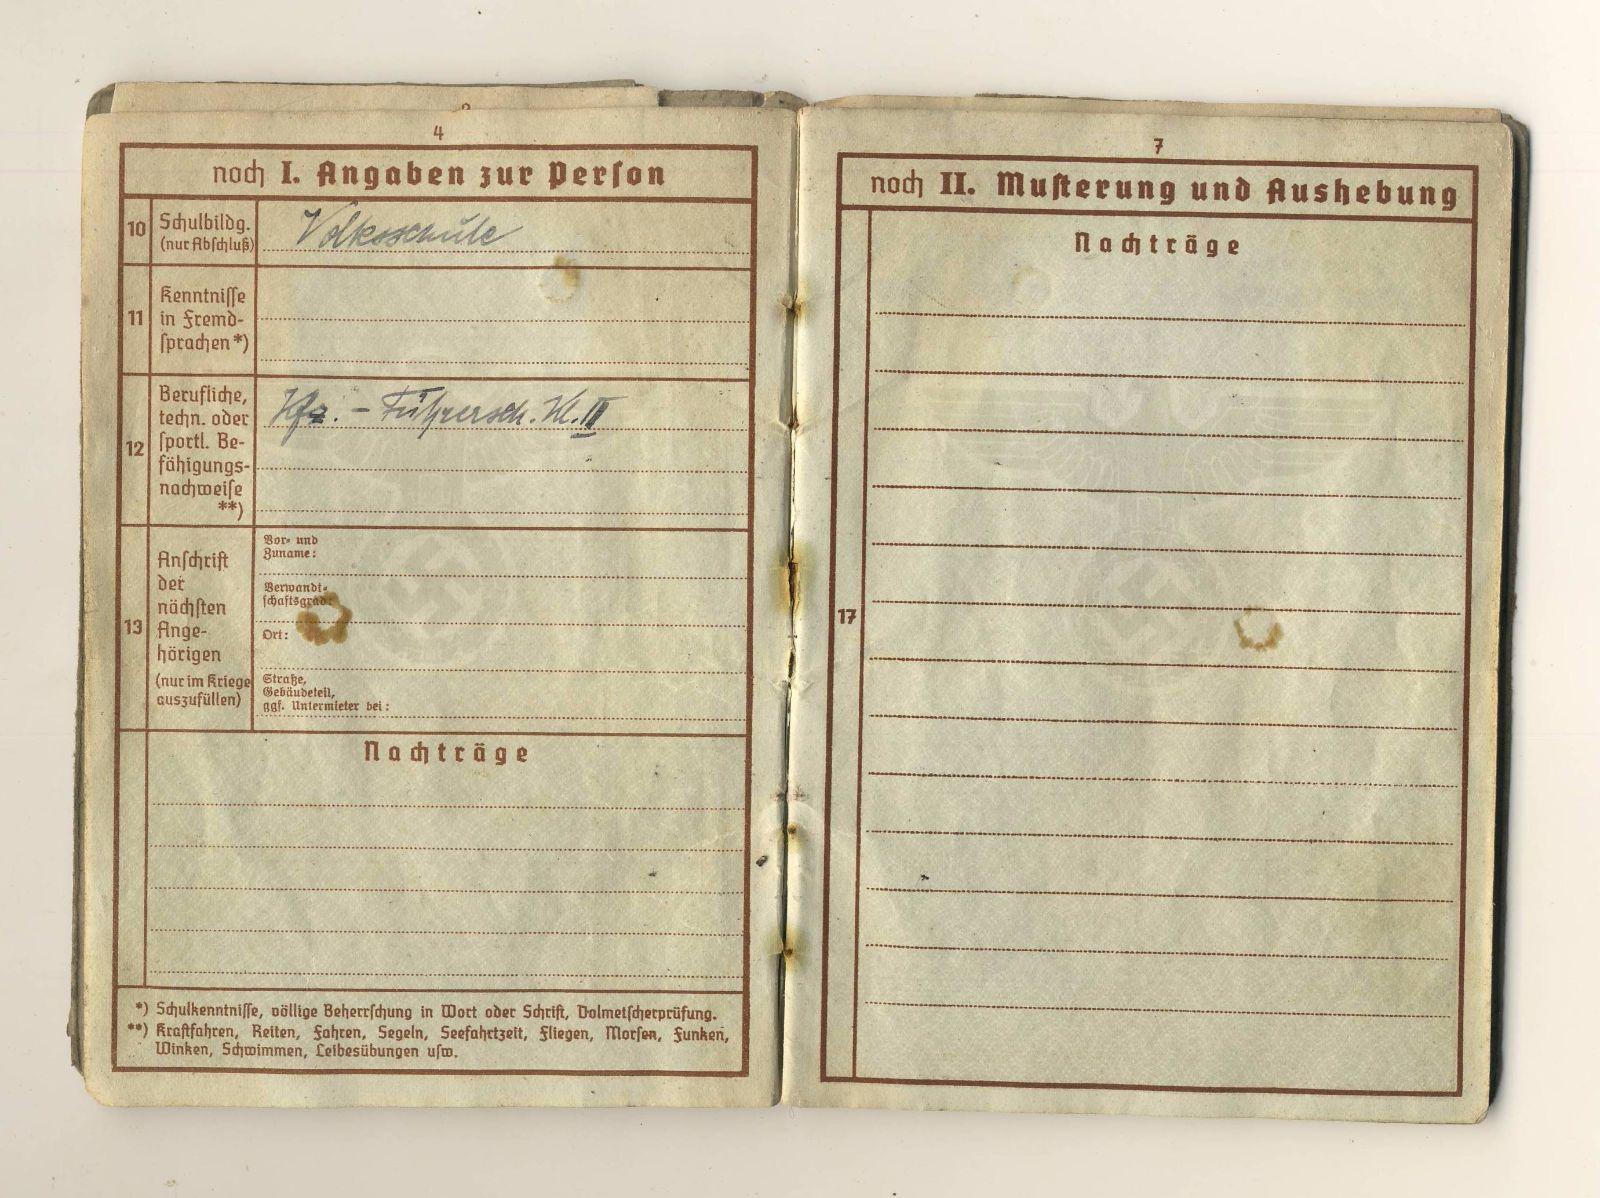 4
noch I. Angaben zur Person
10 Schulbildg.
(nur Abschluß)
Volksschule
11 Kenntnisse
in Fremd-
sprachen *)
12 Berufliche,
techn. oder
sportl. Be-
fähigungs-
nachweise
**)
Kfz. - Führersch. Kl. III
13 Anschrift
der
nächsten
Ange-
hörigen
(nur im Kriege
auszufüllen)
Vor- und
Zuname:
Verwandt-
schaftsgrad:
Ort:
Straße,
Gebäudeteil,
ggf. Untermieter bei:
Nachträge
*) Schulkenntnisse, völlige Beherrschung in Wort oder Schrift, Dolmetscherprüfung.
**) Kraftfahren, Reiten, Fahren, Segeln, Seefahrtzeit, Fliegen, Morsen, Funken,
Winken, Schwimmen, Leibesübungen usw.
7
noch II. Musterung und Aushebung
Nachträge
17